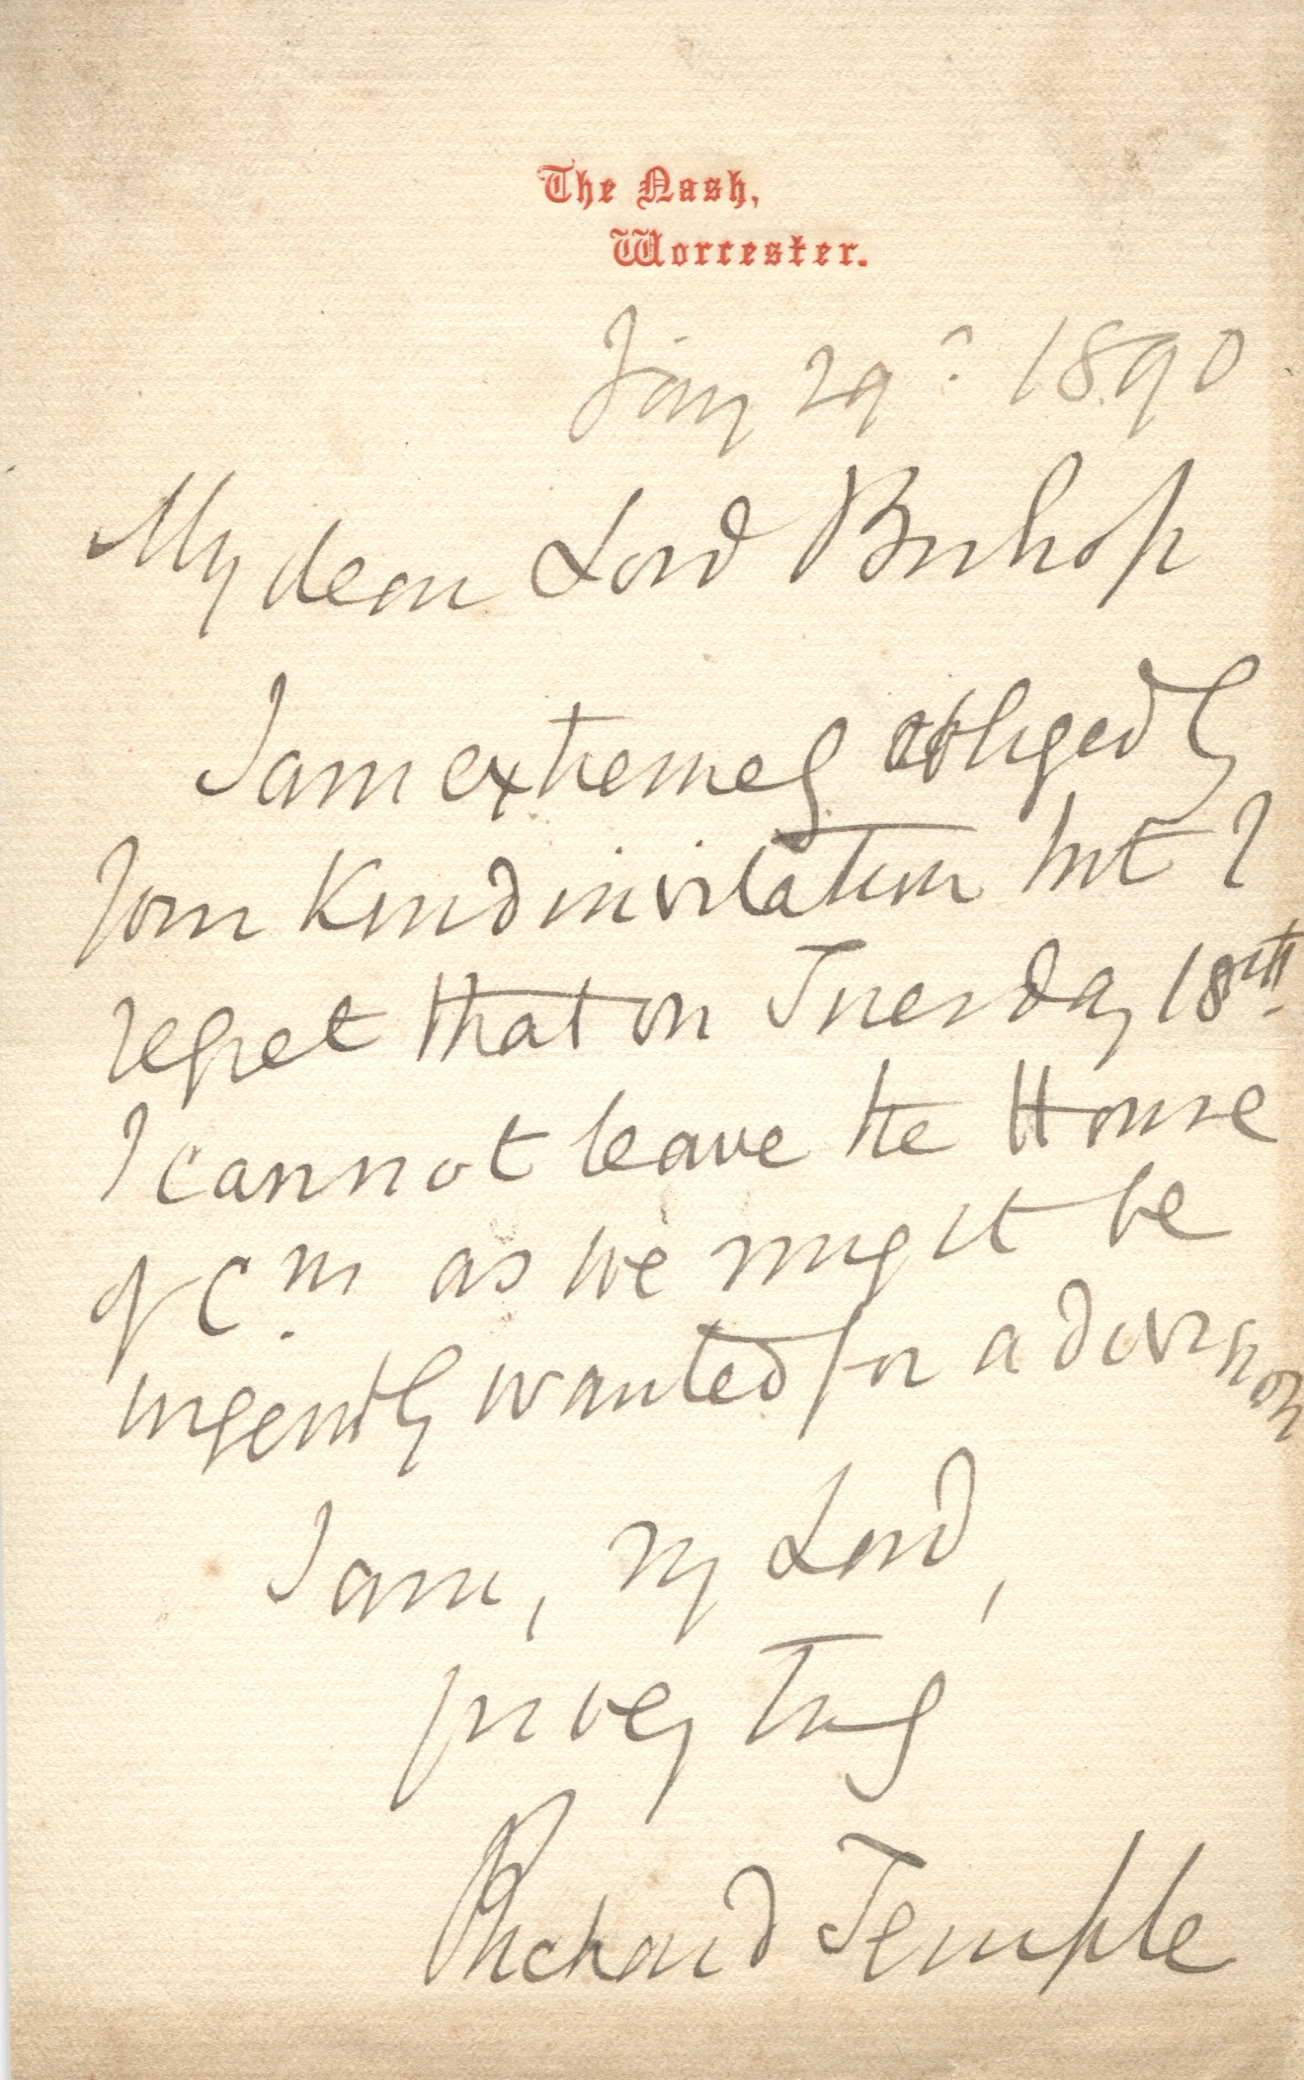 The Nash,
Worcester.
Jany 29? 1890
My dear Lord Bishop
I am extremely obliged by
your kind invitation but I
regret that on Tuesday 18th
I cannot leave the House
of Cms as we might be
urgently wanted for a division
I am, my Lord,
yrs very truly
Richard Temple